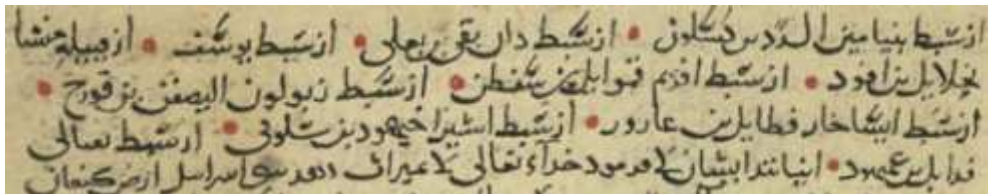 از سبط بنیامین الددبن کسلون • از سبط دان بقی بن یعلی • از سبط یوسف • از قبیله منشا
خلایل بن افود • از سبط افریم قموایل بن سفطن • از سبط زبولون الیصفن بن قورح •
از سبط ایشاخار فطایل بن عارور • از سبط اشیر اخیهود بن سلونی • از سبط نفتالی
فدایل بن عمیهود • اینانند ایشان که فرمود خداء تعالی که میراث دهد بنی اسراسل ارض کنعان